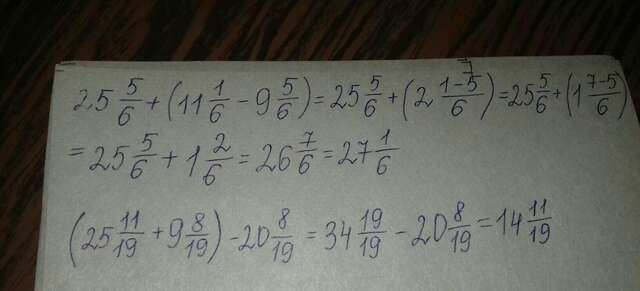 25 5/6 + (11 1/6 - 9 5/6) = 25 5/6 + (2 (1-5)/6) = 25 5/6 + (1 (7-5)/6)
= 25 5/6 + 1 2/6 = 26 7/6 = 27 1/6
(25 11/19 + 9 8/19) - 20 8/19 = 34 19/19 - 20 8/19 = 14 11/19